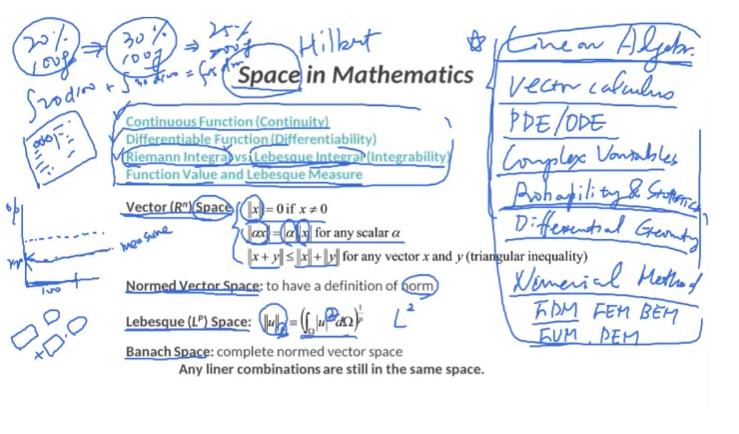 20% 100g ⇒ 30% 100g ⇒ 25% 200g
Hilbert
Space in Mathematics
Continuous Function (Continuity)
Differentiable Function (Differentiability)
Riemann Integral vs. Lebesque Integral (Integrability)
Function Value and Lebesque Measure
Vector (Rⁿ) Space: |x| = 0 if x ≠ 0
|αx| = |α||x| for any scalar α
|x + y| ≤ |x| + |y| for any vector x and y (triangular inequality)
measure
100
Normed Vector Space: to have a definition of norm
Lebesque (Lᴾ) Space:
L²
Banach Space: complete normed vector space
Any liner combinations are still in the same space.
Linear Algebr.
Vector calculus
PDE/ODE
Complex Variables
Probability & Statistics
Differential Geometry
Numerical Method
FDM FEM BEM
FVM DEM